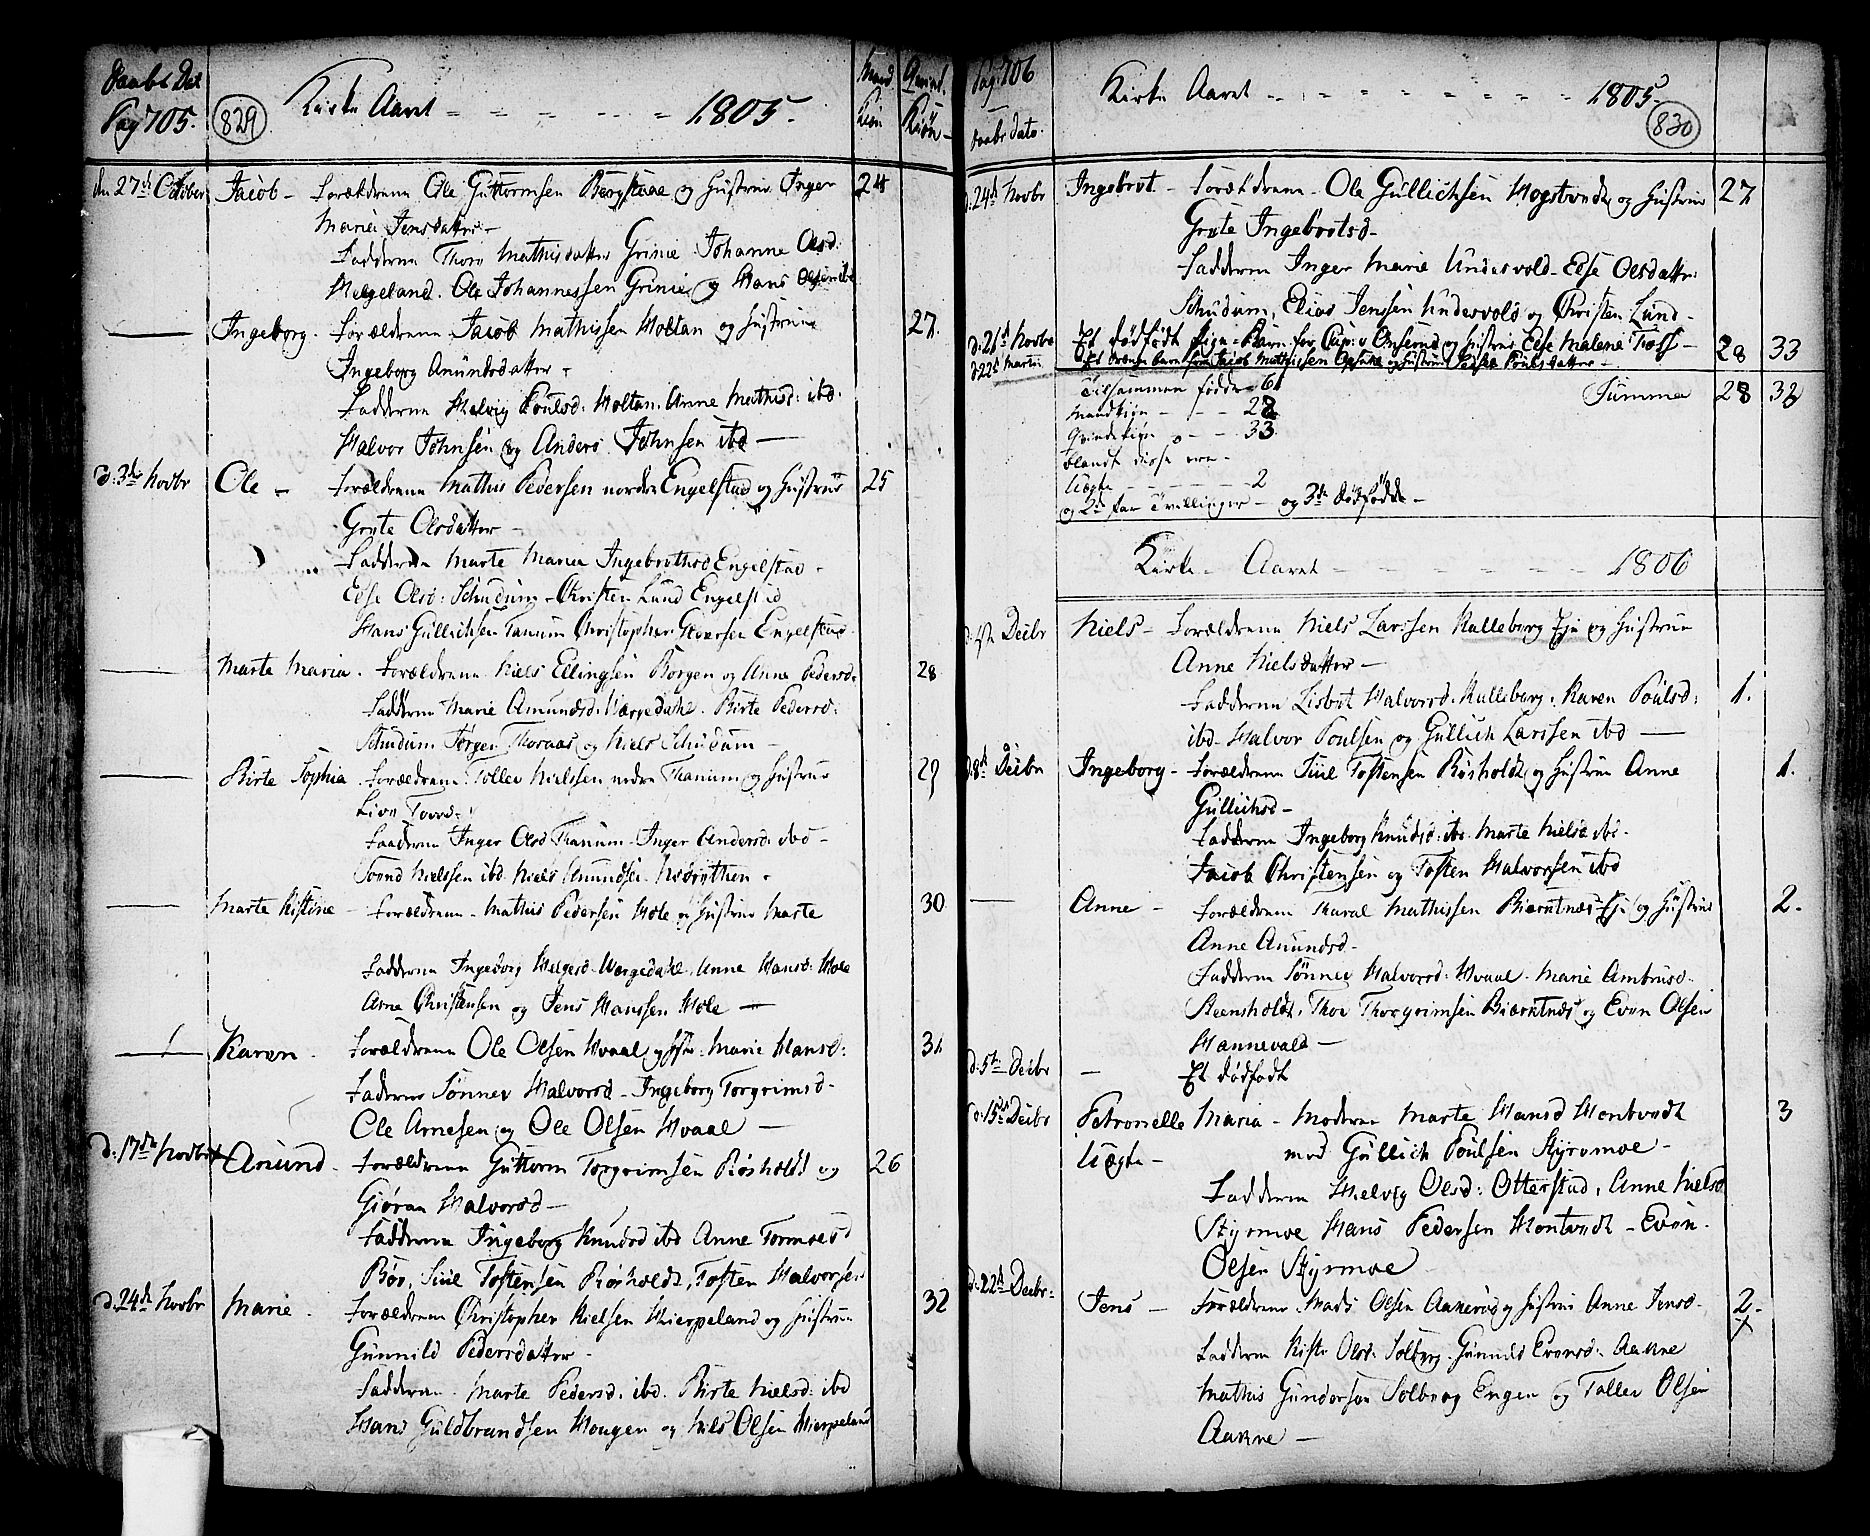 Daabs Dat
Pag 705.
829
Kirke Aaret 1805.
Mand Kiön
Qvind. Kiön
den 27de October Jacob - Forældrene Ole Guttormsen Bergstuae og Hustrue Inger 24
Marie Jensdatter -
Faddere Thore Mathisdatter Grinie Johanne Olsd:
Helgeland. Ole Johannessen Grinie og Hans Olsen ibd
Ingeborg. Forældrene Jacob Mathissen Holtan og Hustrue 27.
Ingeborg Anundsdatter -
Faddere Helvig Poulsd: Holtan. Anne Mathisd: ibd.
Halvor Johnsen og Anders Johnsen ibd -
d: 3de Novbr Ole - Forældrene Mathis Pedersen nordre Engelstad og Hustrue 25
Grete Olsdatter -
Faddere Marte Maria Ingebrethsd Engelstad -
Else Olsd: Schudum - Christen Lund Engelstad
Hans Gullichsen Tanum Christopher Evensen Engelstad
Marte Maria. Forældrene Niels Ellingsen Borgen og Anne Pedersd: 28
Faddere Marie Amundsd: Vergedahl. Birte Pedersd:
Schudum Jørgen Thoraas og Niels Schudum -
Birte Sophia. Forældrene Tollev Nielssen nedre Thanum og Hustrue 29
Live Tovsd:
Faddere Inger Olsd Thanum - Inger Andersd: ibd -
Tovud Nielssen ibd Niels Anundsen
Marte Kistine - Forældrene - Mathis Pedersen Hole og Hustrue Marte 30
Faddere Ingeborg Helgesd. Vergedahl. Anne Hansd: Hole
Arne Christensen og Jens Hanssen Hole -
Karen. Forældrene Ole Olsen Hvaal og Hstr: Marie Hansd: 31
Faddere Sønnev Halvorsd - Ingeborg Torgrimsd -
Ole Arnesen og Ole Olsen Hvaal -
d: 17de Novbr Anund - Forældrene Guttorm Torgrimsen Rösholdt og 26
Giöran Halvorsd -
Faddere Ingeborg Knudsd ibd Anne Tormoesd
Röe, Siul Tostensen Rösholdt, Tosten Halvorsen
d: 24de Novbr Marie. Forældrene Christopher Nielsen Kierpeland og Hustrue 32
Gunnild Pedersdatter -
Faddere. Marte Pedersd. ibd. Birte Nielsd: ibd
Hans Guldbrandsen Hougen og Niels Olsen Kierpeland
Pag. 706
Daabs dato.
Kirke Aaret 1805.
830
d: 24de Novbr Ingebret - Forældrene - Ole Gullichsen Hogstvedt og Hustrue 27
Grete Ingebretsd -
Faddere Inger Marie Undersvold - Else Olsdatter
Schudum, Elias Jenssen Undersvold og Christen Lund -
d: 21de Novbr Et dødfødt Pige-Barn for Cap: v Onserud og Hustrue Else Malene Foss - 28 33
d 22d Martii Et drenge barn for Jacob Mathissen og Hustrue Poulsdatter -
Tilsammen fødde - 61 Summa 28 33
Mandkiøn - - - 28
Qvindekiøn - - 33
blandt disse ere -
Uægte - - - 2
og 2de par Tvillinger - og 3de dødfødde -
Kirke - Aaret - 1806
Deibr Niels - Forældrene Niels Larssen Kulleborg Eje og Hustrue
Anne Nielsdatter -
Faddere Lisbet Halvorsd. Kulleborg. Karen Poulsd: 1.
ibd - Halvor Poulsen og Gullich Larssen ibd -
d. 8de Deibr Ingeborg - Forældrene Siul Tostensen Rösholdt og Hustrue Anne 1.
Gullichsd -
Faddere Ingeborg Knudsd: ibd. Marte Nielsd ibd.
Jacob Christensen og Tosten Halvorsen ibd
Anne - Forældrene Haral Mathissen Bierntnes Eje og Hustrue 2.
Anne Anundsd -
Faddere Sønnev Halvorsd: Hvaal - Marie Ambrusd.
Steensholdt, Thor Thorgrimsen Bierntnes og Even Olsen
Hannevald -
d: 5te Deibr - Et dødfødt
d: 15de Deibr Petronelle Maria - Moderen Marte Hansd Hontvedt 3
Uægte - med Gullich Poulsen Styrmoe -
Faddere Helvig Olsd: Otterstad, Anne Nielsd
Styrmoe Hans Pedersen Hontvedt - Even
Olsen Styrmoe
d: 22de Deibr: Jens - Forældrene. Mads Olsen Aakerød og Hustrue Anne Jensd. 2.
Faddere Kisti Olsd: Solberg. Gunnild Evensd: Aakne
Mathis Gundersen Solberg Engen og Tollev Olsen
Aakne -